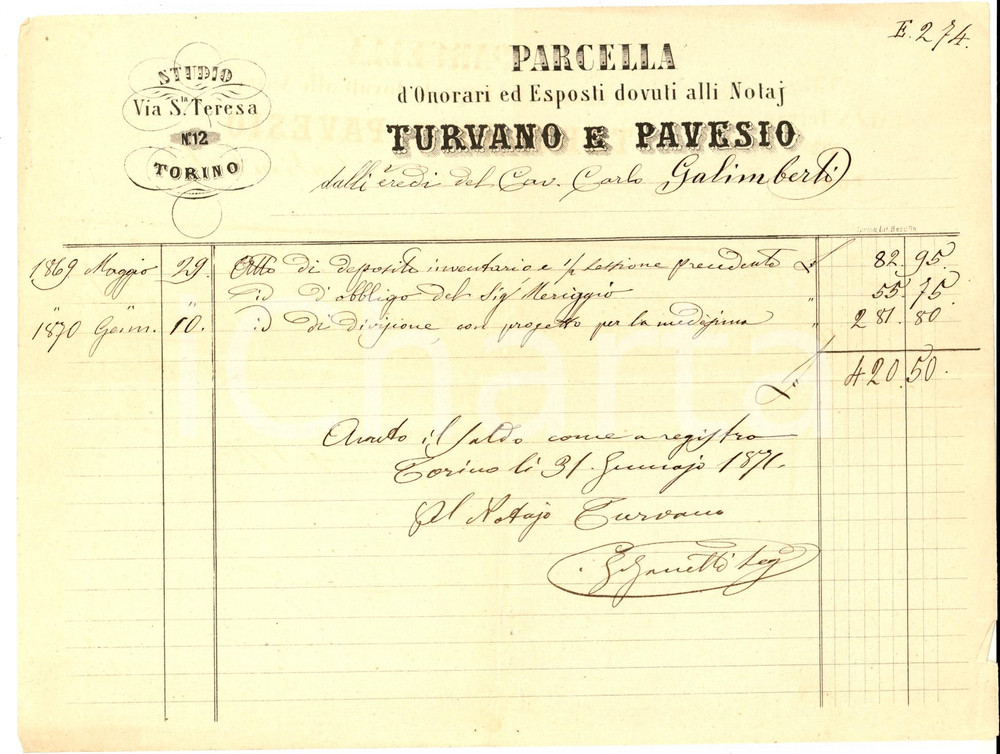 E. 274.
STUDIO
Via S.ta Teresa
N.12
TORINO
PARCELLA
d'Onorari ed Esposti dovuti alli Notaj
TURVANO E PAVESIO
dalli eredi del Cav. Carlo Galimberti
1869 Maggio 29. Atto di deposito inventario e 1/2 sessione precedente £ 82 95
" " id d'obbligo del Sigr Meriggio " 55. 75
1870 Genn. 10. id di divisione con progetto per la medesima " 281. 80
£ 420. 50.
Avuto il saldo come a registro
Torino li 31. Gennajo 1871.
Pel Notajo Turvano
iCharta